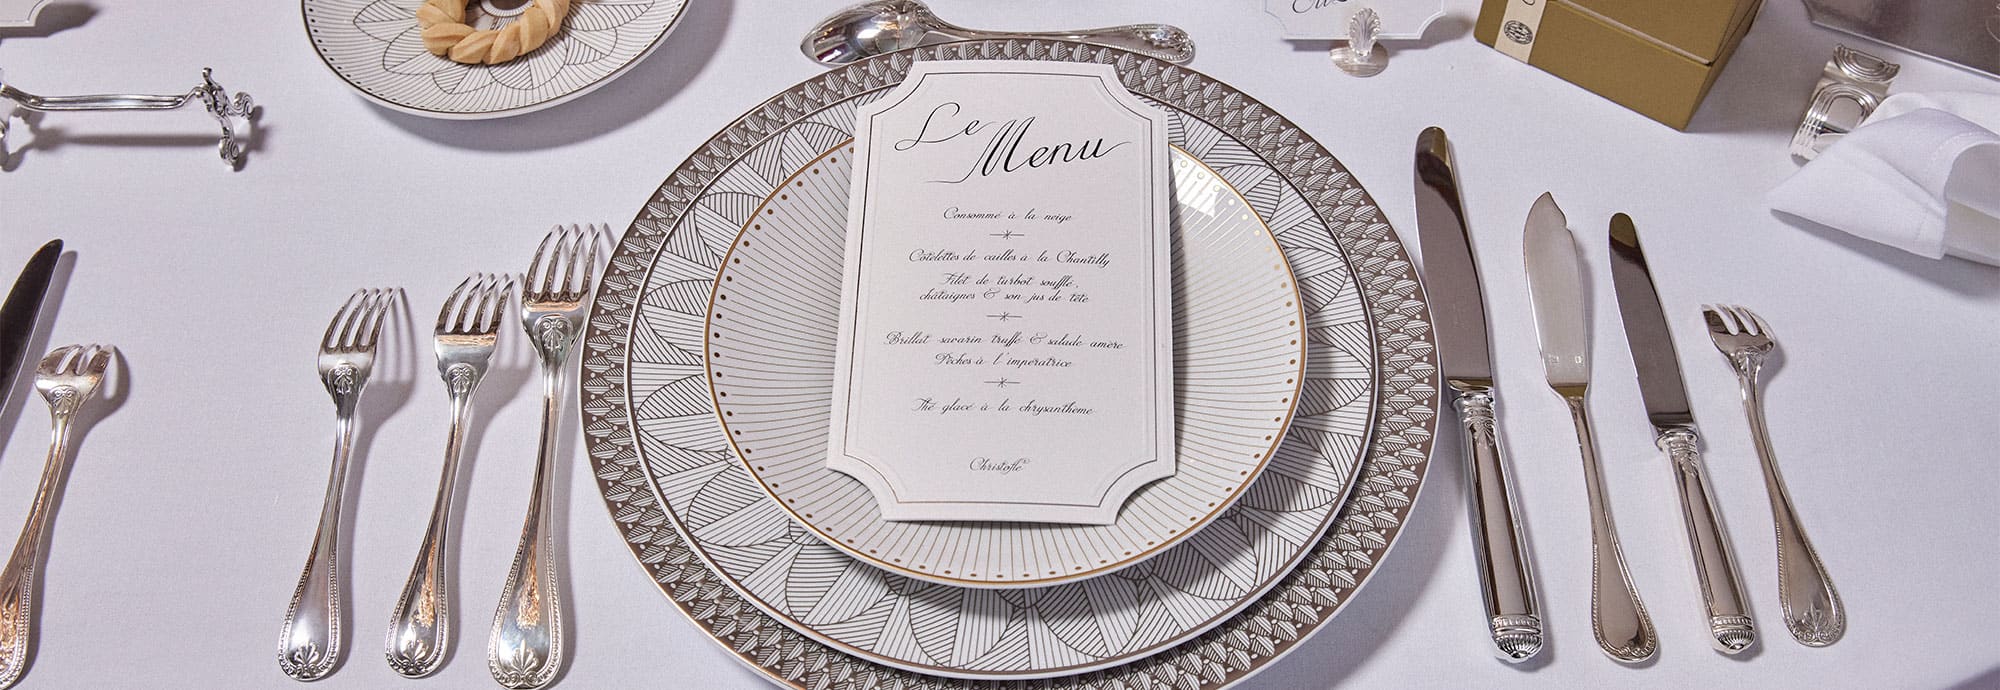 Le
Menu
Consommé à la neige
Côtelettes de cailles à la Chantilly
Filet de turbot soufflé,
châtaignes & son jus de tête
Brillat savarin truffé & salade amère
Pêches à l'impératrice
Thé glacé à la chrysanthème
Christofle